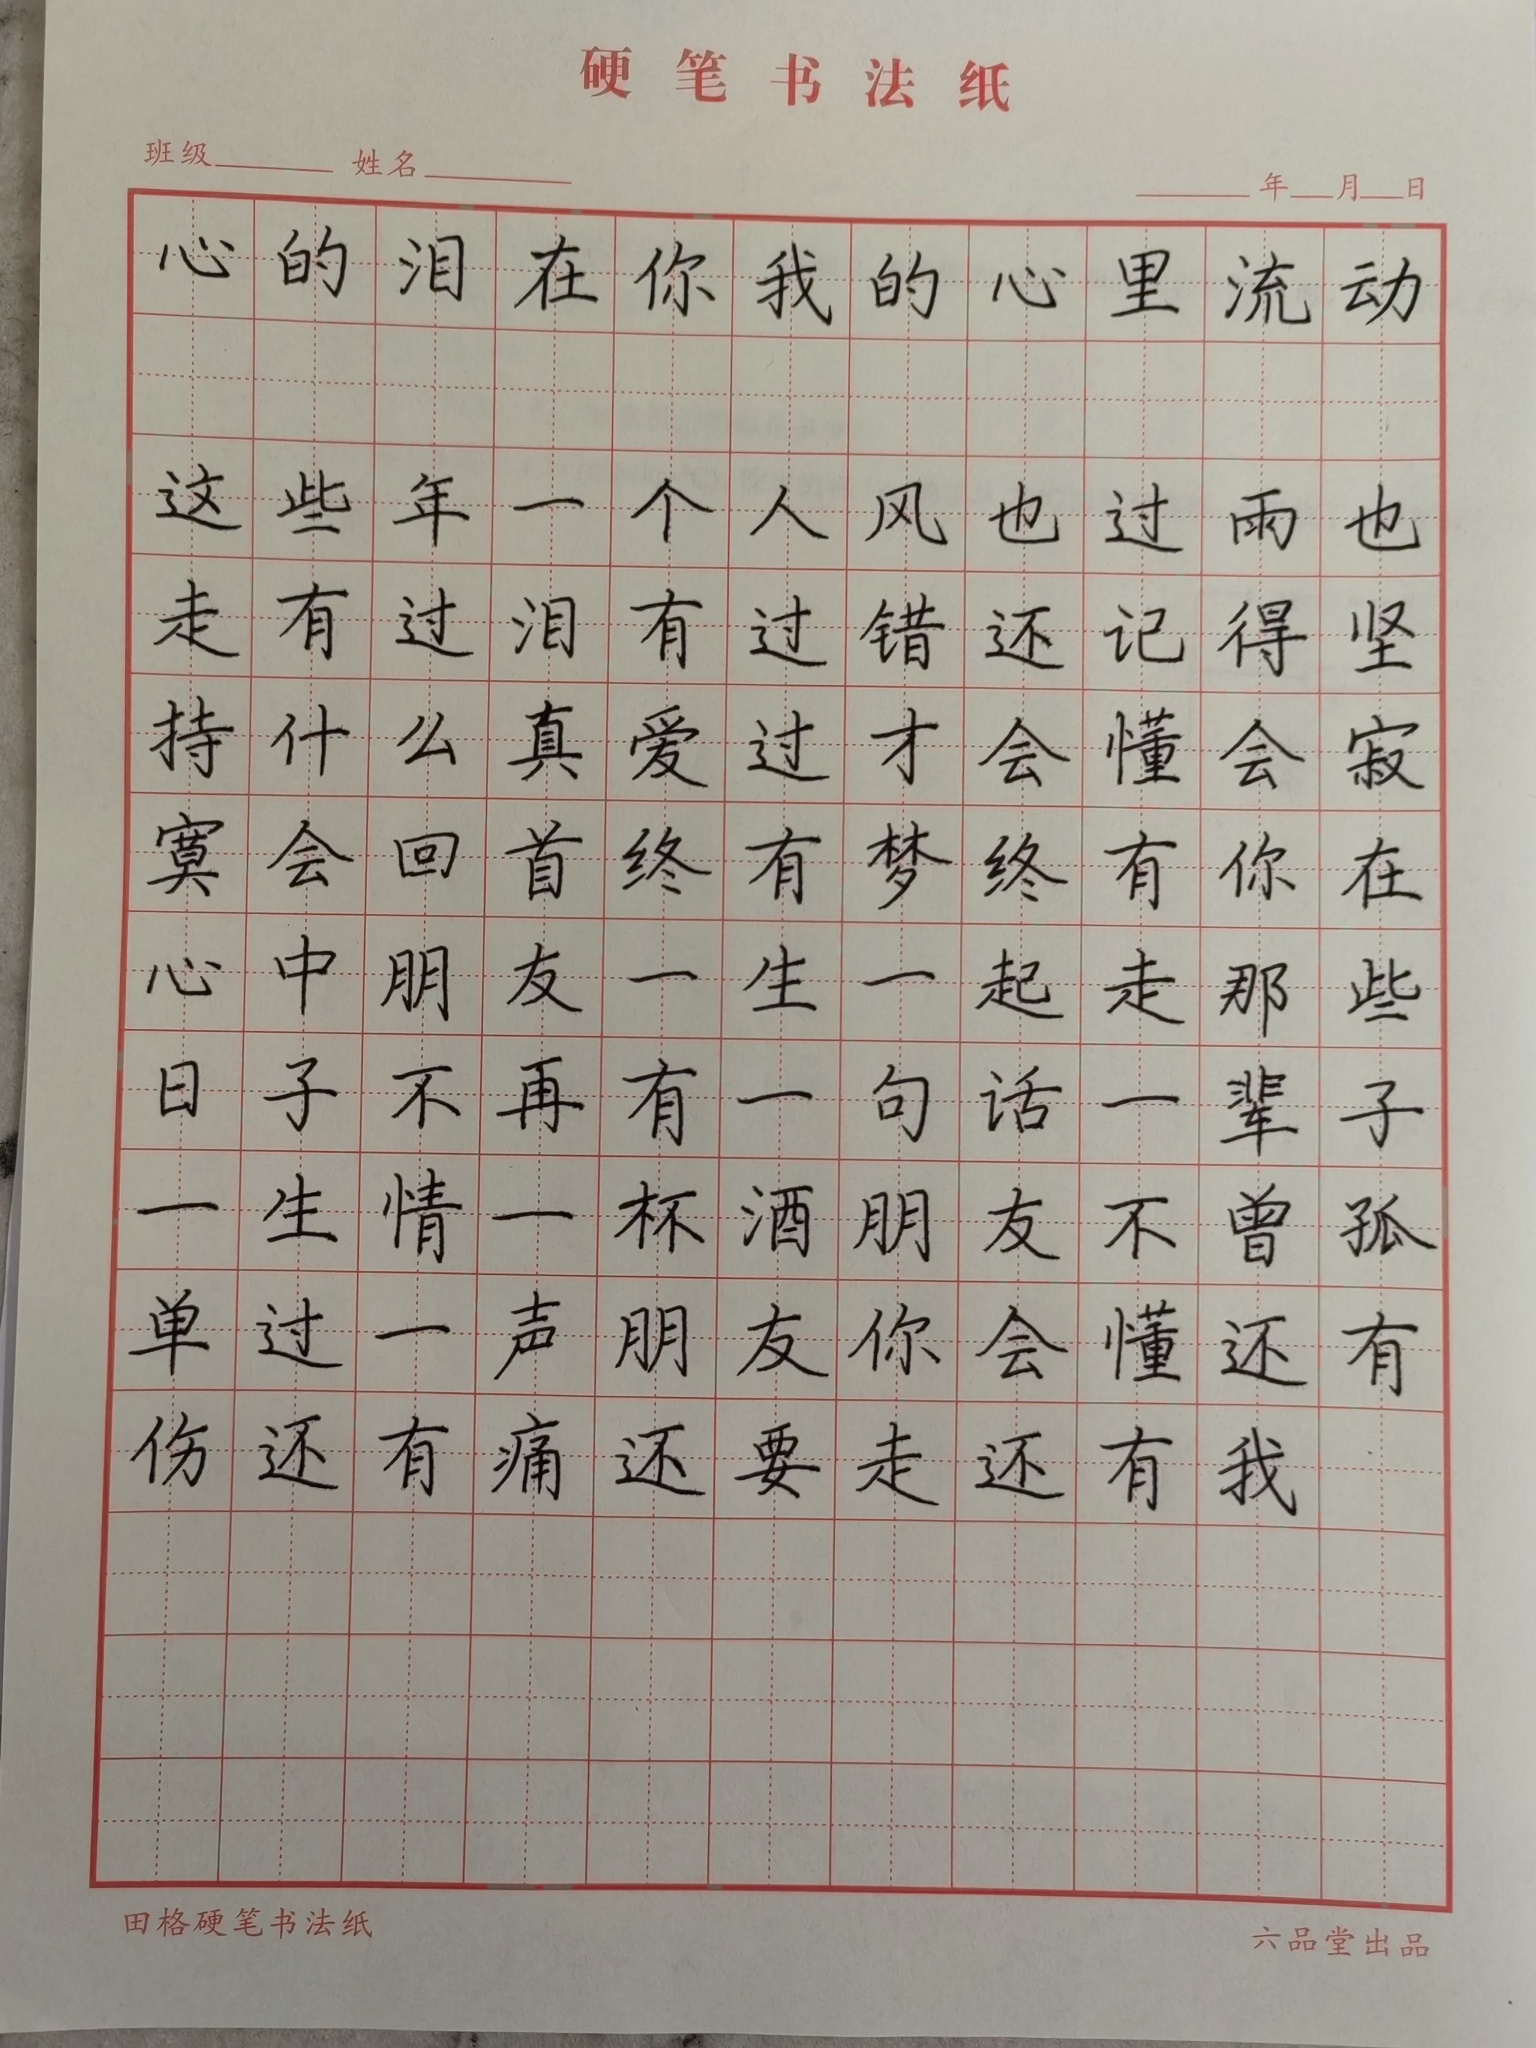 硬笔书法纸
班级 姓名 年 月 日
心的泪在你我的心里流动
这些年一个人风也过雨也
走有过泪有过错还记得坚
持什么真爱过才会懂会寂
寞会回首终有梦终有你在
心中朋友一生一起走那些
日子不再有一句话一辈子
一生情一杯酒朋友不曾孤
单过一声朋友你会懂还有
伤还有痛还要走还有我
田格硬笔书法纸 六品堂出品